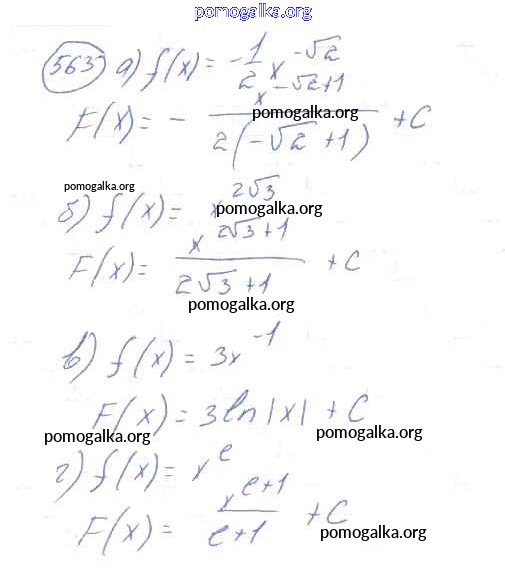 pomogalka.org
563 а) f(x) = -1/2 x^(-√2)
F(x) = - x^(-√2+1) / 2(-√2+1) + C
pomogalka.org
pomogalka.org
б) f(x) = x^(2√3)
pomogalka.org
F(x) = x^(2√3+1) / 2√3+1 + C
pomogalka.org
в) f(x) = 3x^(-1)
F(x) = 3ln|x| + C
pomogalka.org pomogalka.org
г) f(x) = x^e
F(x) = x^(e+1) / e+1 + C
pomogalka.org